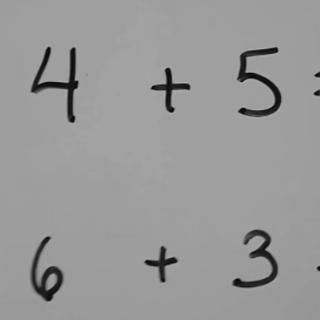 4 + 5 =
6 + 3